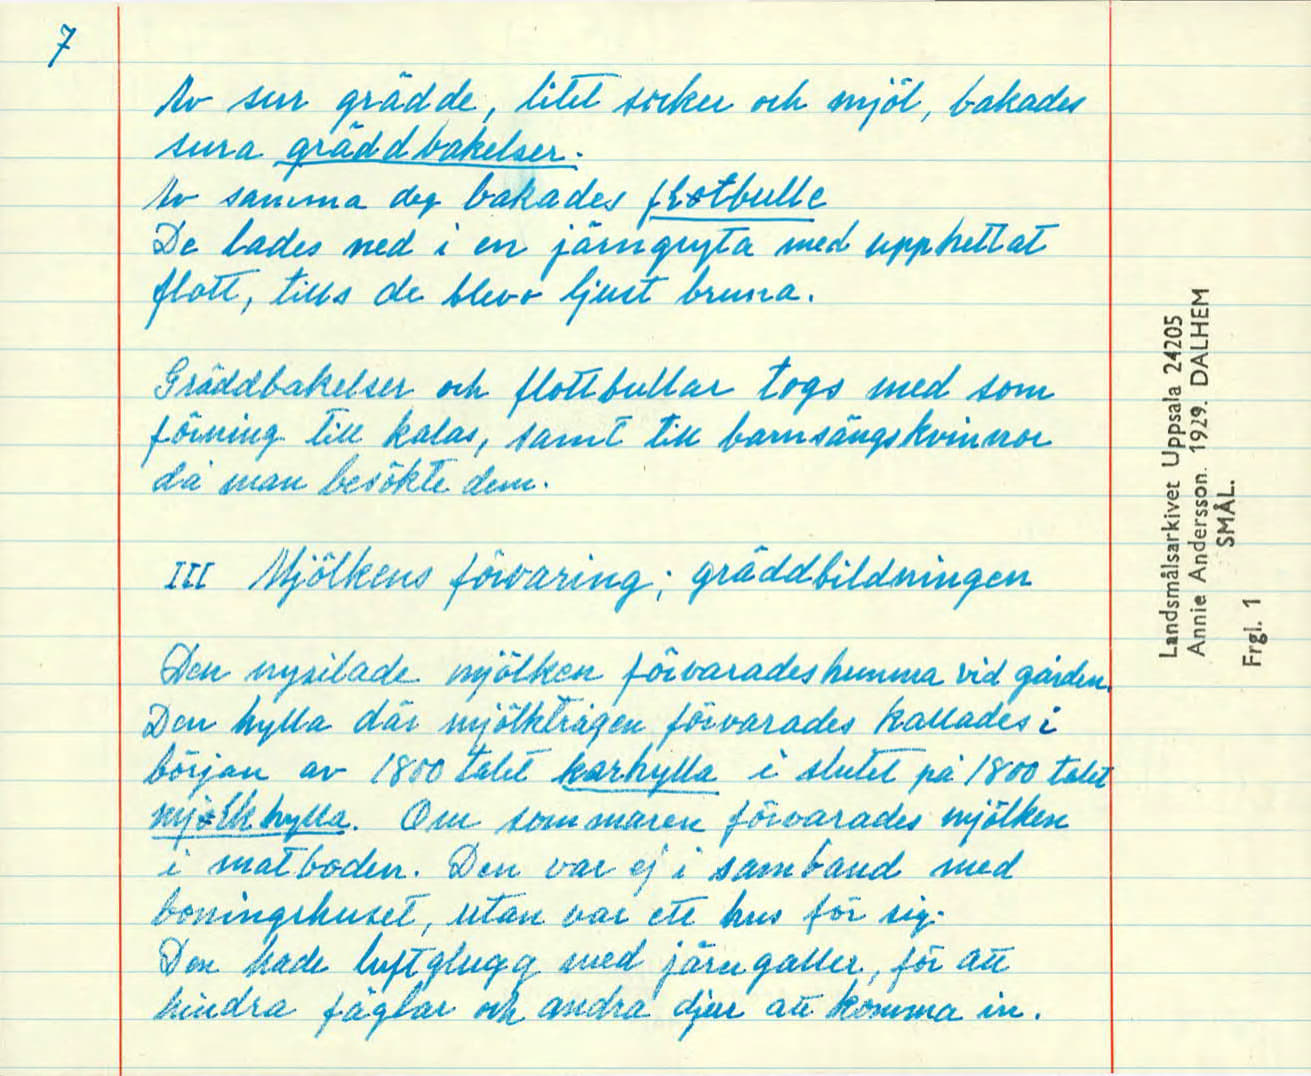 7
Av sur grädde, litet socker och mjöl, bakades
sura gräddbakelser.
Av samma deg bakades flotbulle
De lades ned i en järngryta med upphettat
flott, tills de blevo ljust bruna.
Gräddbakelser och flottbullar togs med som
förning till kalas, samt till barnsängskvinnor
då man besökte dem.
III Mjölkens förvaring; gräddbildningen
Den nysilade mjölken förvarades hemma vid gården.
Den hylla där mjölktrågen förvarades kallades i
början av 1800 talet karhylla i slutet på 1800 talet
mjölkhylla. Om sommaren förvarades mjölken
i matboden. Den var ej i samband med
boningshuset, utan var ett hus för sig.
Den hade luftglugg med järngaller, för att
hindra fåglar och andra djur att komma in.
Landsmålsarkivet Uppsala 24205
Annie Andersson. 1929. DALHEM
SMÅL.
Frgl. 1